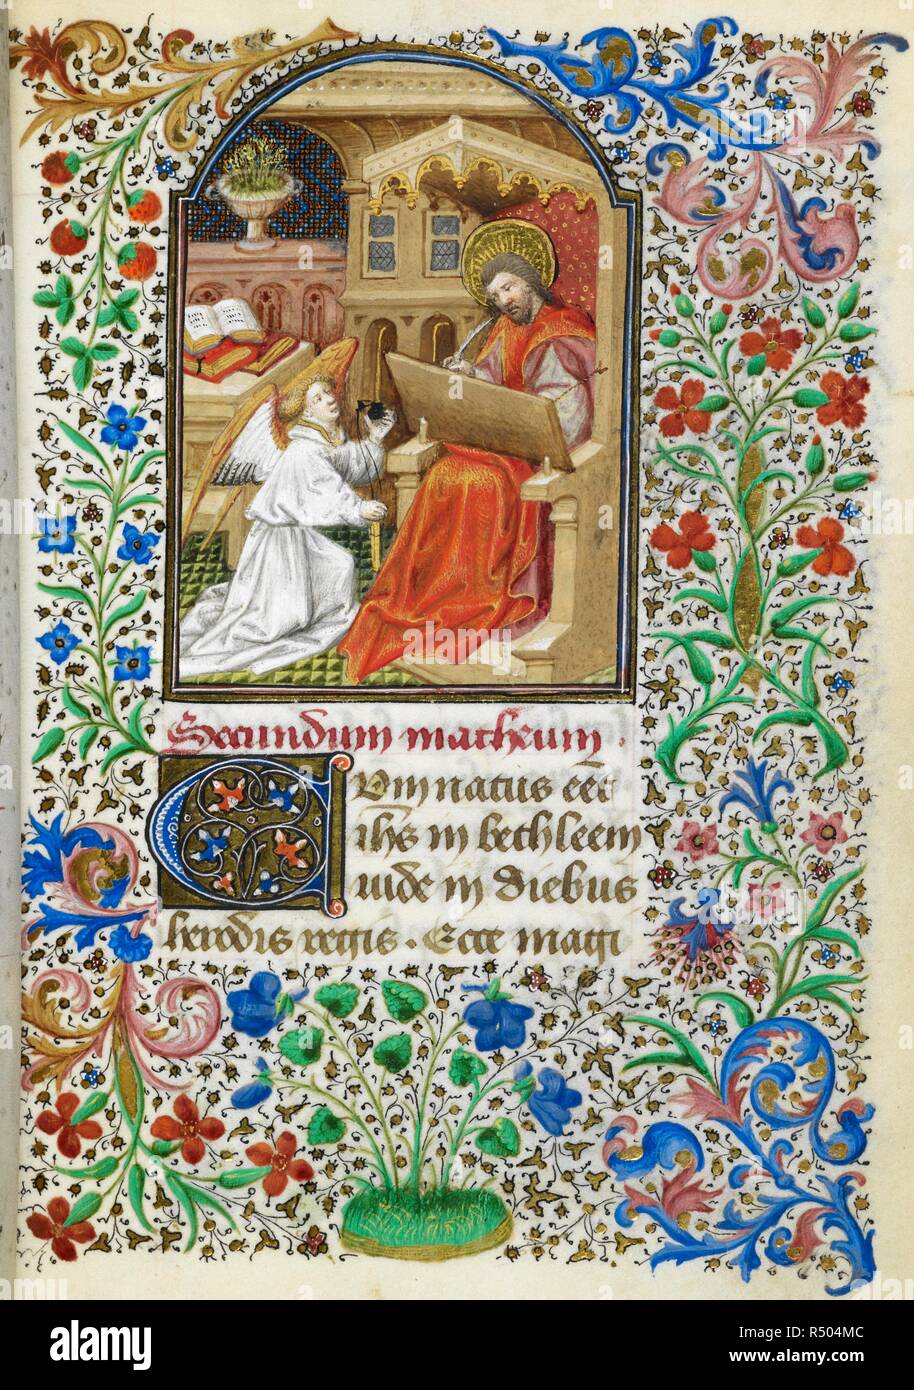 Secundum matheum.
Cum natus eēt
ihs̄ in bethleem
iude in diebus
herodis regis. Ecce magi
alamy
Image ID: R504MC
www.alamy.com